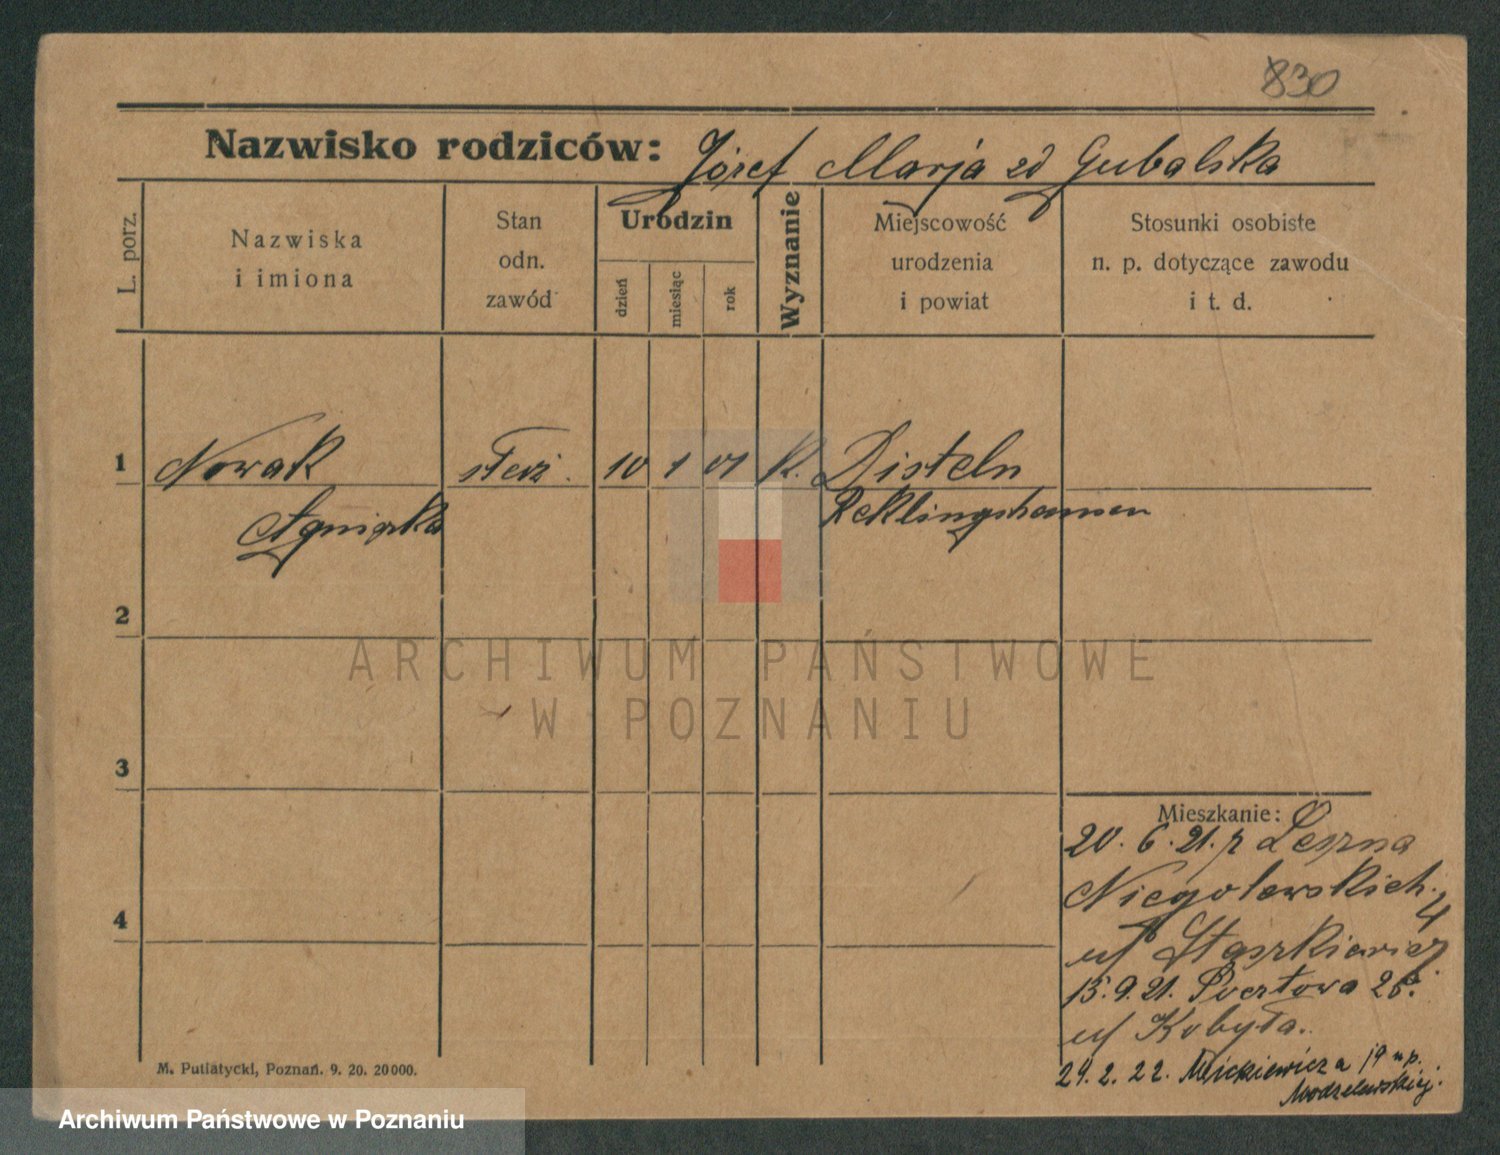 830
Nazwisko rodziców: Józef Marja zd Gubalska
L. porz.
Nazwiska
i imiona
Stan
odn.
zawód
Urodzin
dzień
miesiąc
rok
Wyznanie
Miejscowość
urodzenia
i powiat
Stosunki osobiste
n. p. dotyczące zawodu
i t. d.
1 Nowak służ. 10 1 01 K. Disteln
Agnieszka Reklingshausen
2
ARCHIWUM PAŃSTWOWE
W POZNANIU
3
Mieszkanie:
20. 6. 21. z Leszna
Niegolewskich.
4
4
u/ Staszkiewicz
15. 9. 21. Pocztowa 26.
u/ Kobyła.
M. Putiatycki, Poznań. 9. 20. 20000.
24. 2. 22. Mickiewicza 19 u p.
Modzelewskiej.
Archiwum Państwowe w Poznaniu